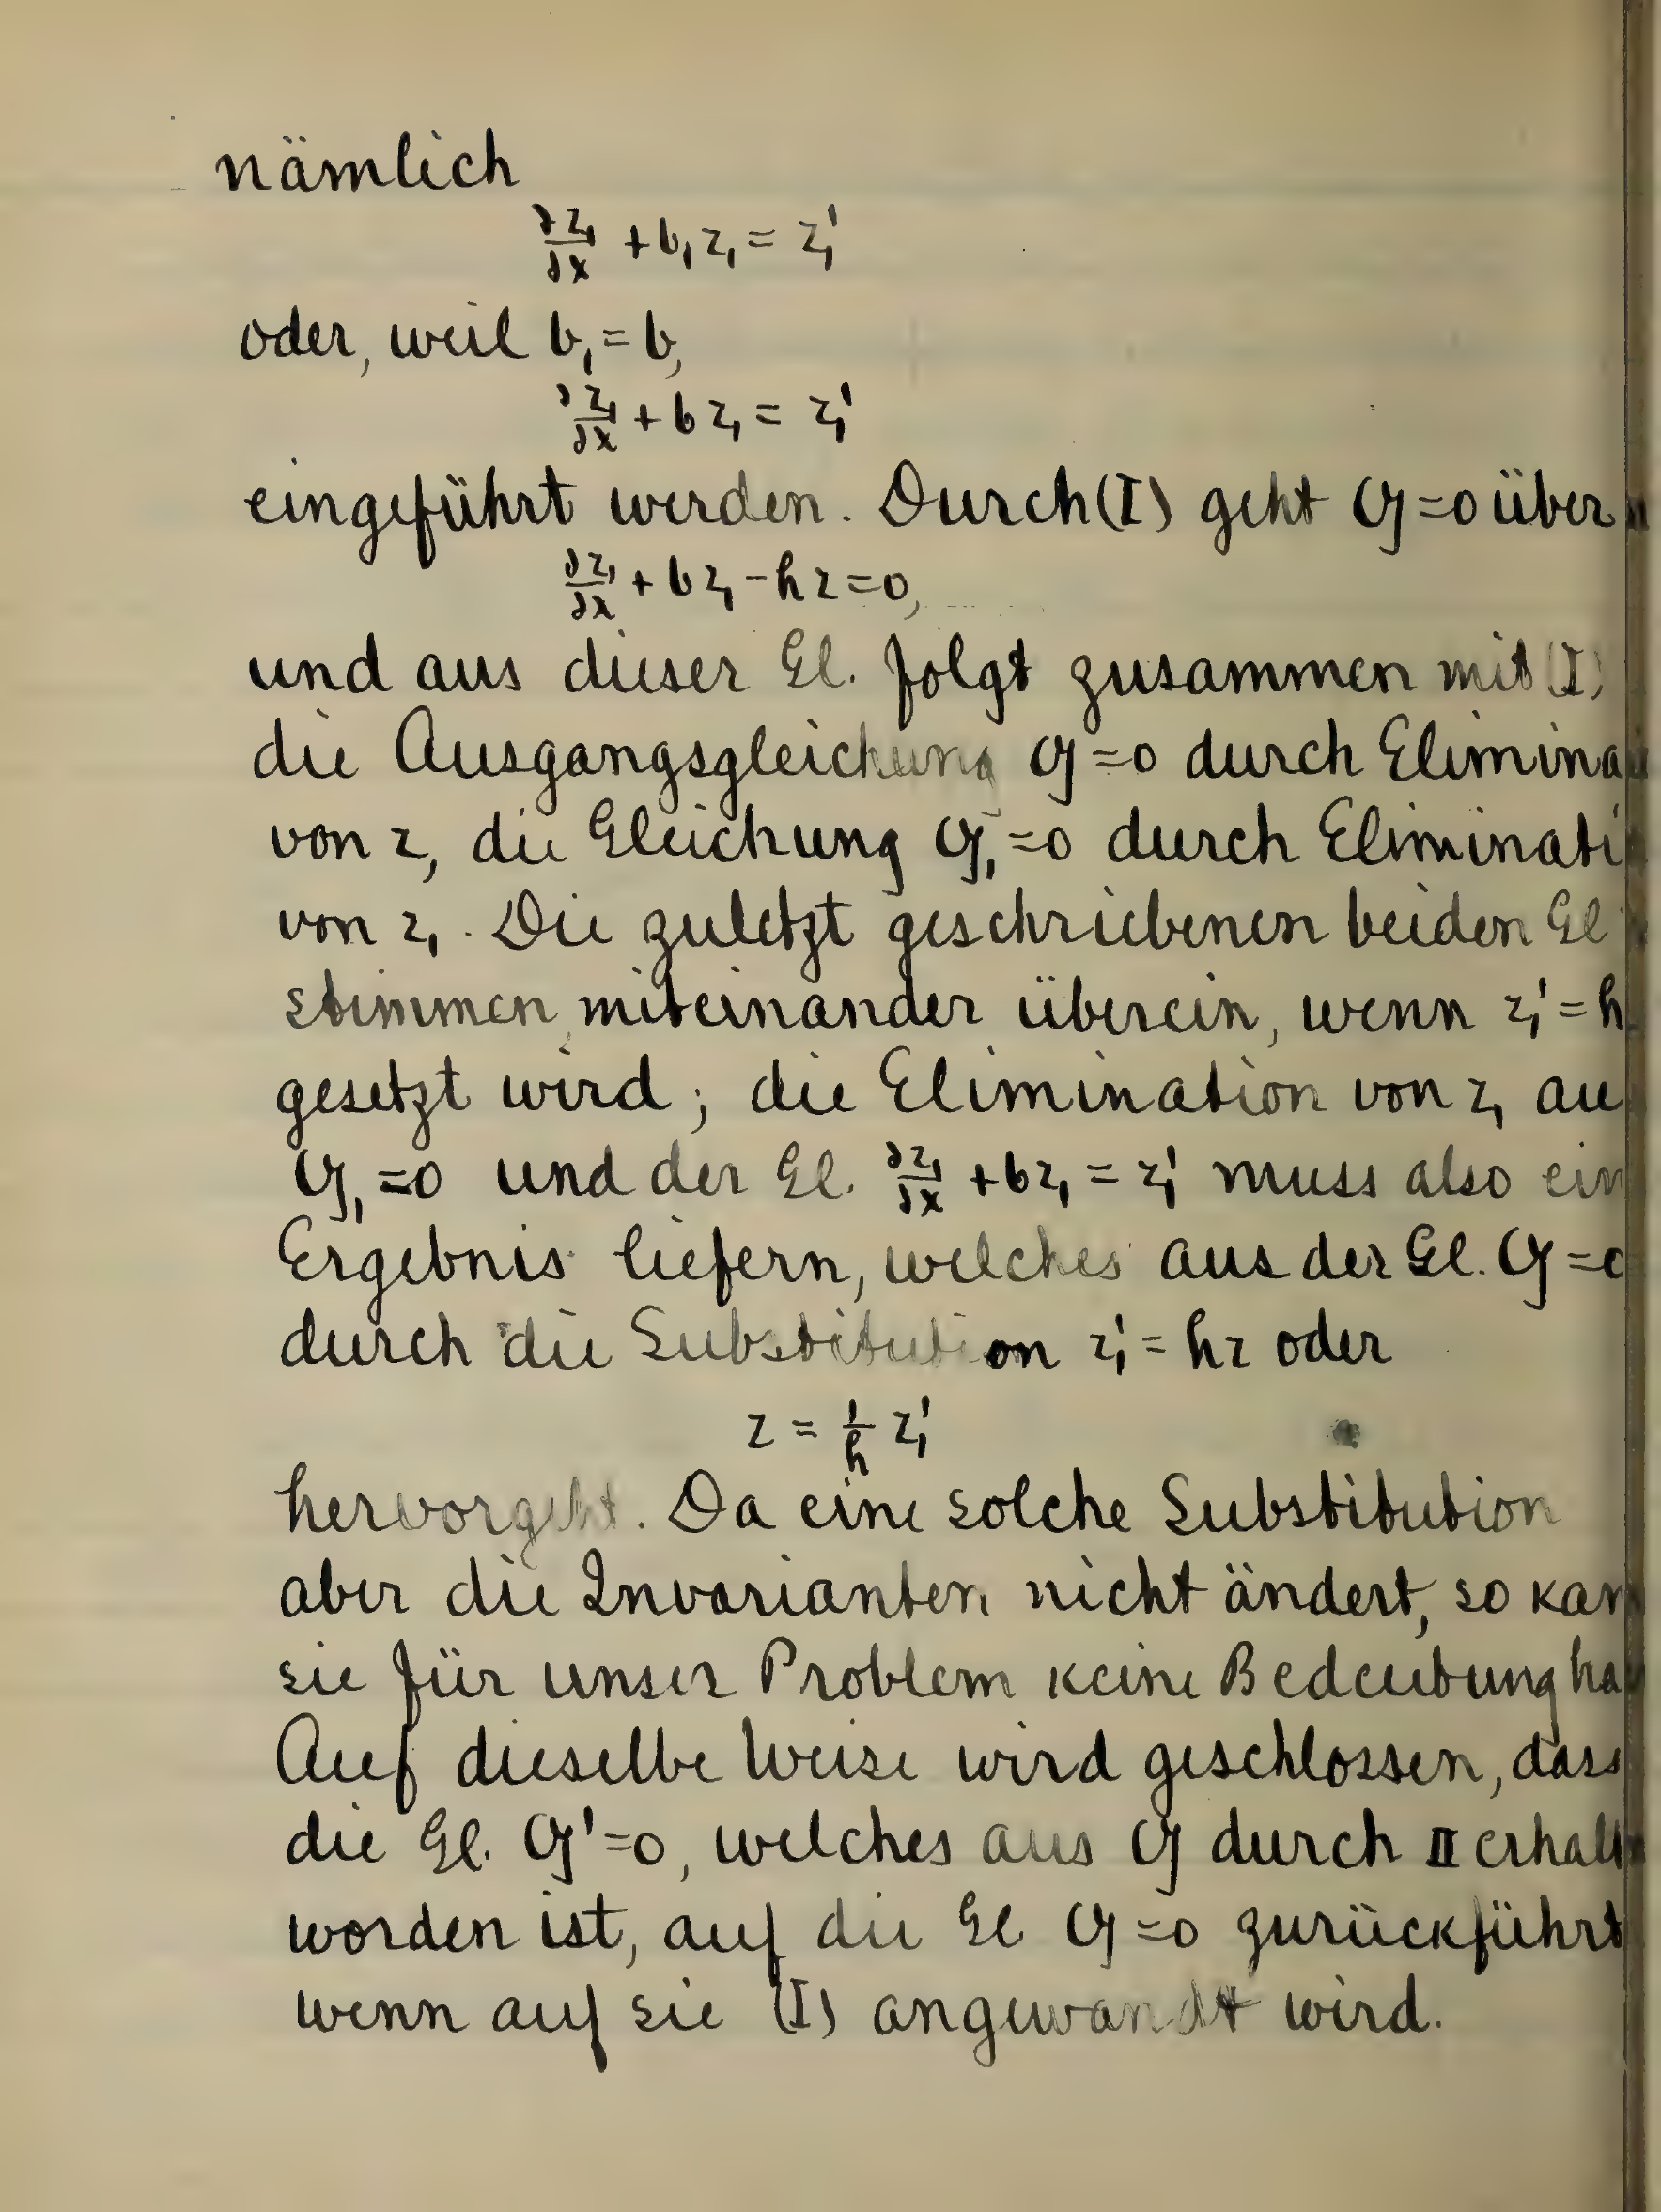 nämlich
∂z₁/∂x + b₁z₁ = z₁'
oder, weil b₁ = b,
∂z₁/∂x + b z₁ = z₁'
eingeführt werden. Durch (I) geht Cy = 0 über
∂z₁/∂x + b z₁ - h z = 0,
und aus dieser Gl. folgt zusammen mit (I)
die Ausgangsgleichung Cy = 0 durch Elimina
von z, die Gleichung Cy₁ = 0 durch Eliminati
von z₁. Die zuletzt geschriebenen beiden Gl
stimmen miteinander überein, wenn z₁' = h
gesetzt wird; die Elimination von z₁ au
Cy₁ = 0 und der Gl. ∂z₁/∂x + b z₁ = z₁' muss also ein
Ergebnis liefern, welches aus der Gl. Cy = 0
durch die Substitution z₁' = hz oder
z = 1/h z₁'
hervorgeht. Da eine solche Substitution
aber die Invarianten nicht ändert, so kan
sie für unser Problem keine Bedeutung ha
Auf dieselbe Weise wird geschlossen, dass
die Gl. Cy' = 0, welches aus Cy durch II erhalt
worden ist, auf die Gl Cy = 0 zurückführt
wenn auf sie (I) angewandt wird.